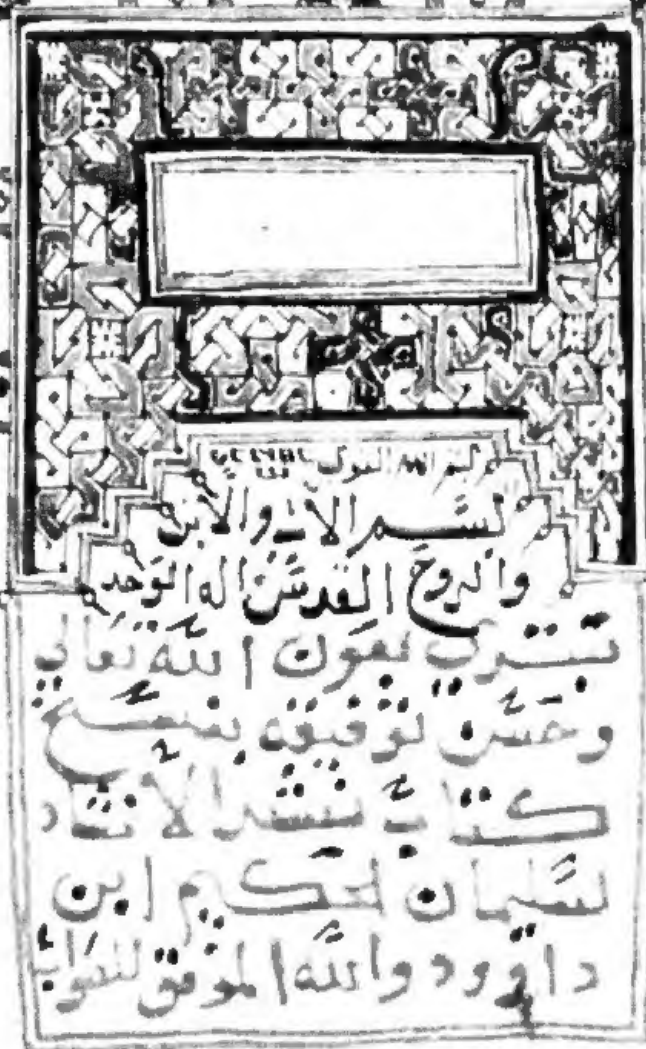 بسم الاب والابن
والروح القدس اله الوحد
نبتدى بعون الله تعالى
وحسن توفيقه بنسخ
كتاب نشد الانشاد
لسليمان الحكيم ابن
داوود والله الموفق للصواب